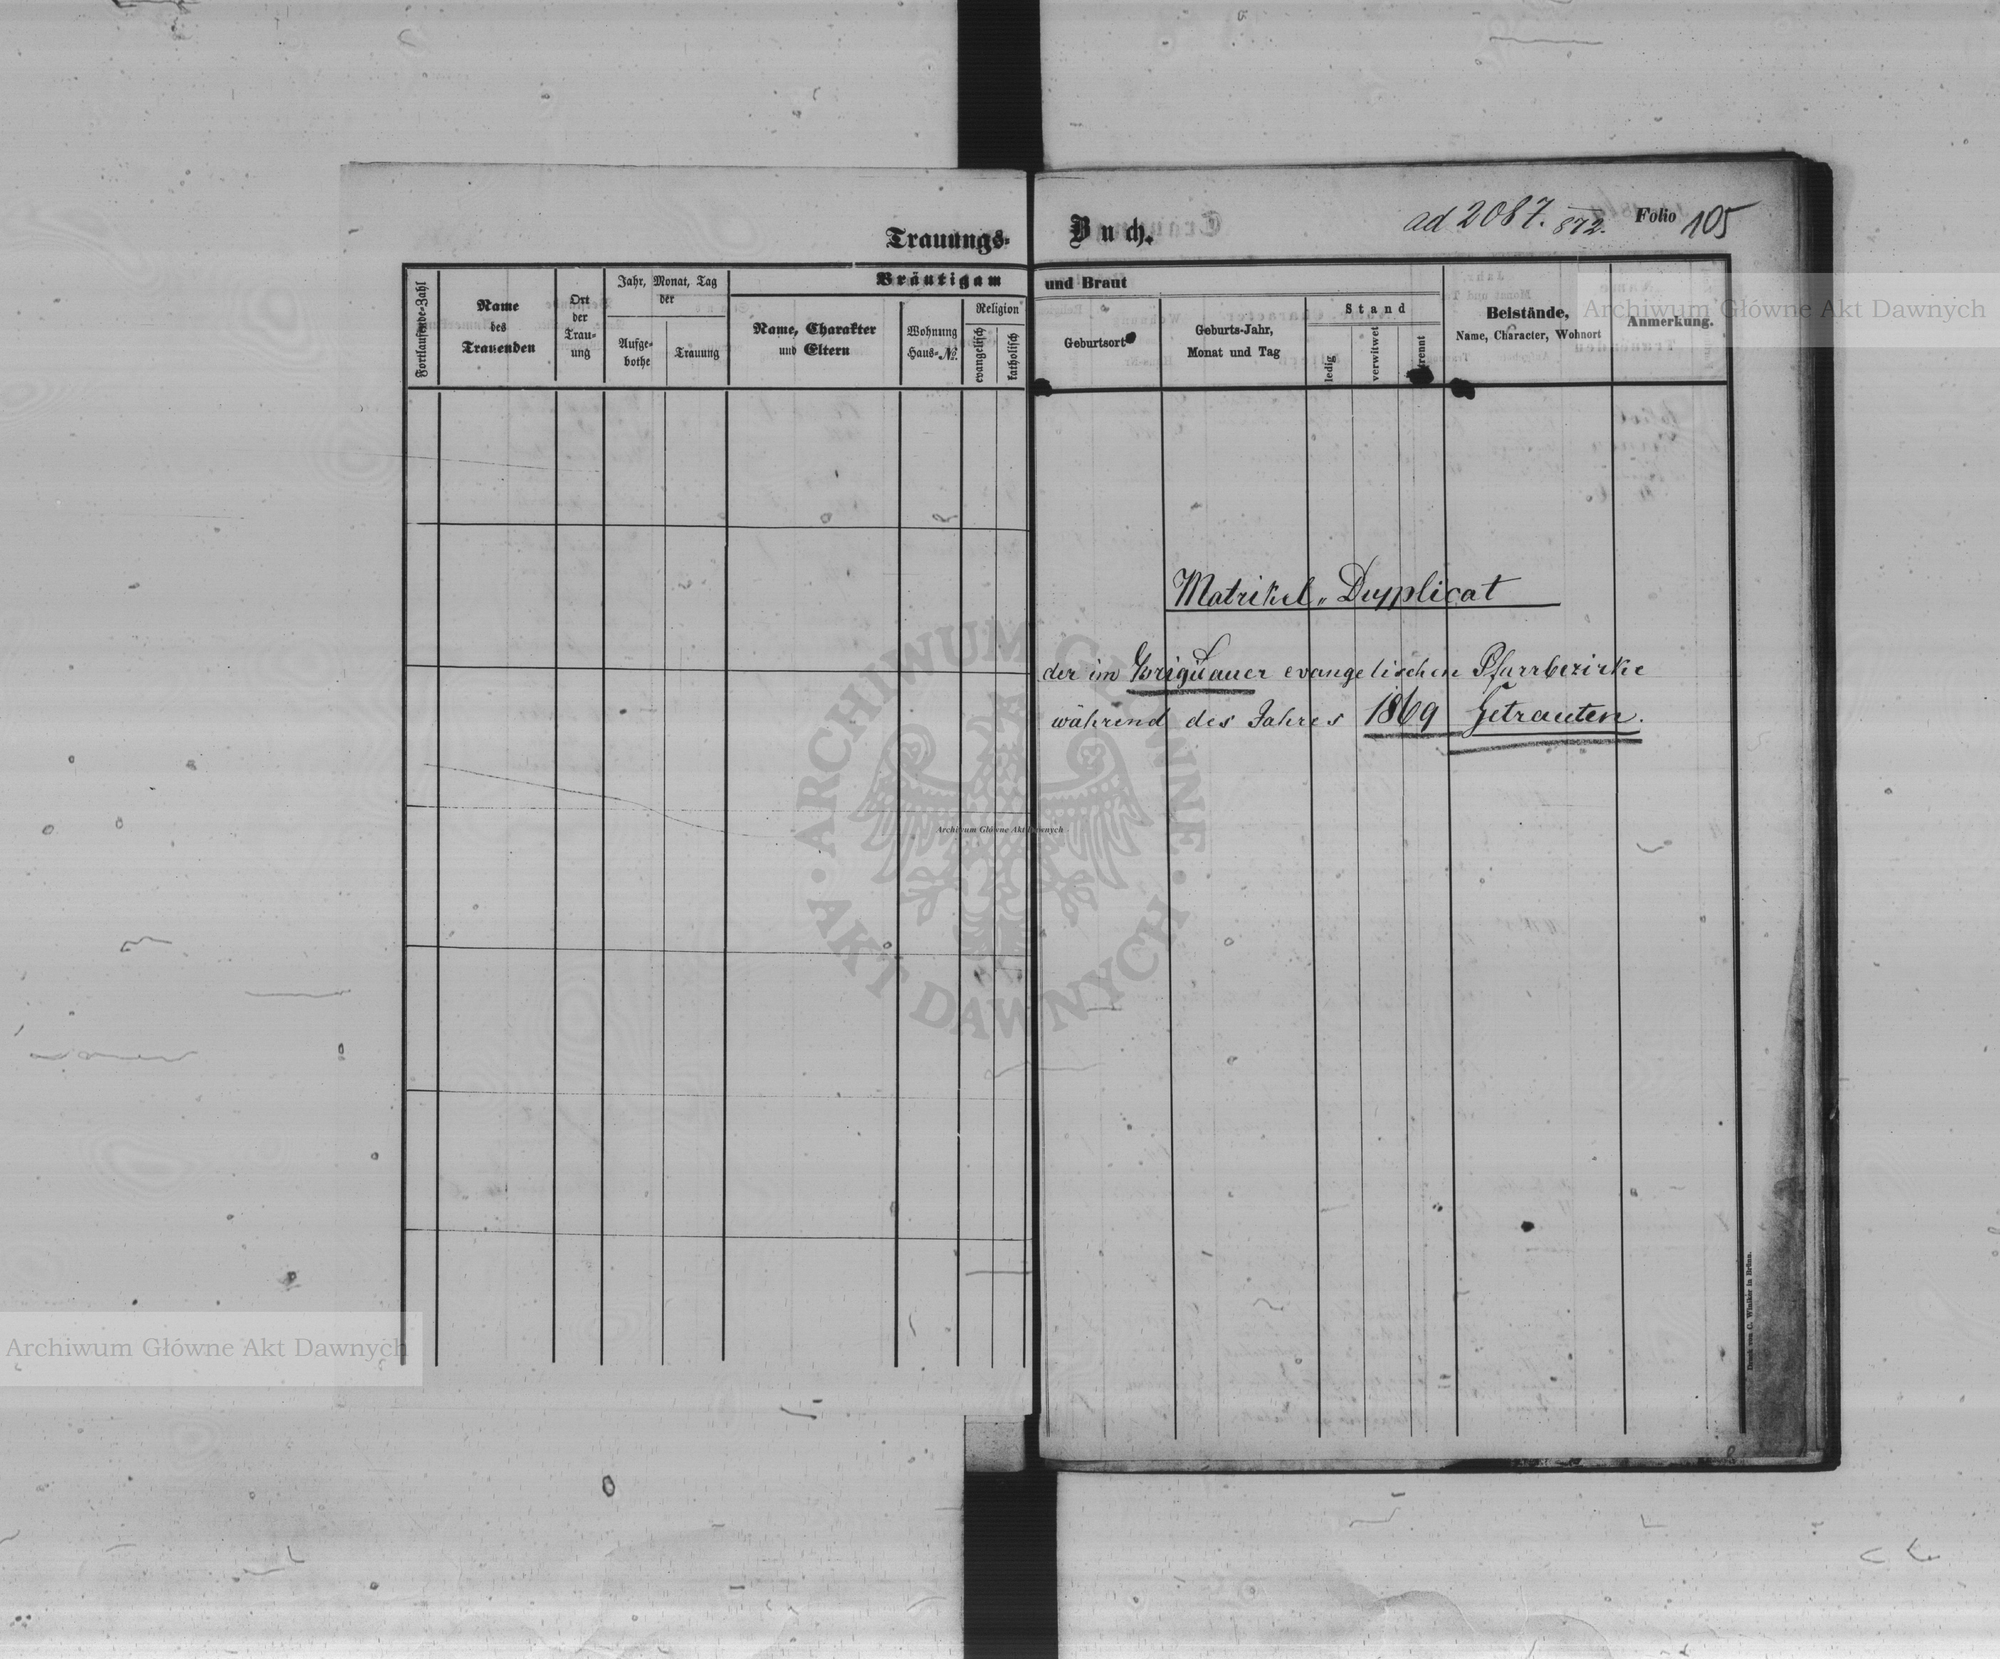 Trauungs-Buch.
ad 2087. 872.
Folio 105
Fortlaufende-Zahl
Name
des
Trauenden
Ort
der
Trau-
ung
Jahr, Monat, Tag
der
Aufge-
bothe
Trauung
Bräutigam und Braut
Name, Charakter
und Eltern
Wohnung
Haus-№.
Religion
evangelisch
katholisch
Geburtsort
Geburts-Jahr,
Monat und Tag
Stand
ledig
verwitwet
trennt
Beistände,
Name, Character, Wohnort
Anmerkung.
Matrikel-Dupplicat
der im Brigidauer evangelischen Pfarrbezirke
während des Jahres 1869 Getrauten.
Druck von C. Winiker in Brünn.
Archiwum Główne Akt Dawnych
ARCHIWUM GŁÓWNE
AKT DAWNYCH
Archiwum Główne Akt Dawnych
Archiwum Główne Akt Dawnych